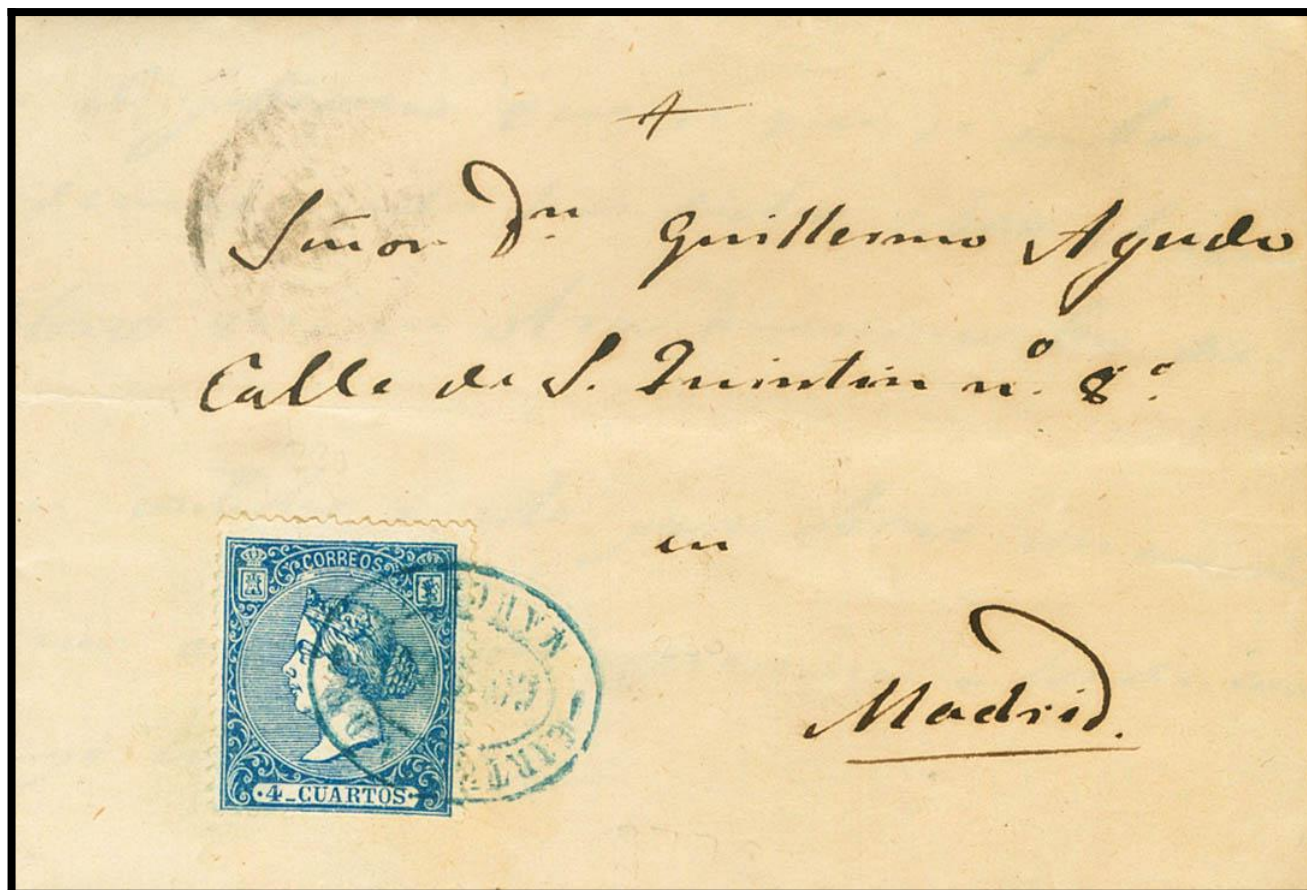 Señor Dn Guillermo Agudo
Calle de S. Quintin nº. 8º.
en
Madrid.
CORREOS
4_CUARTOS
CART